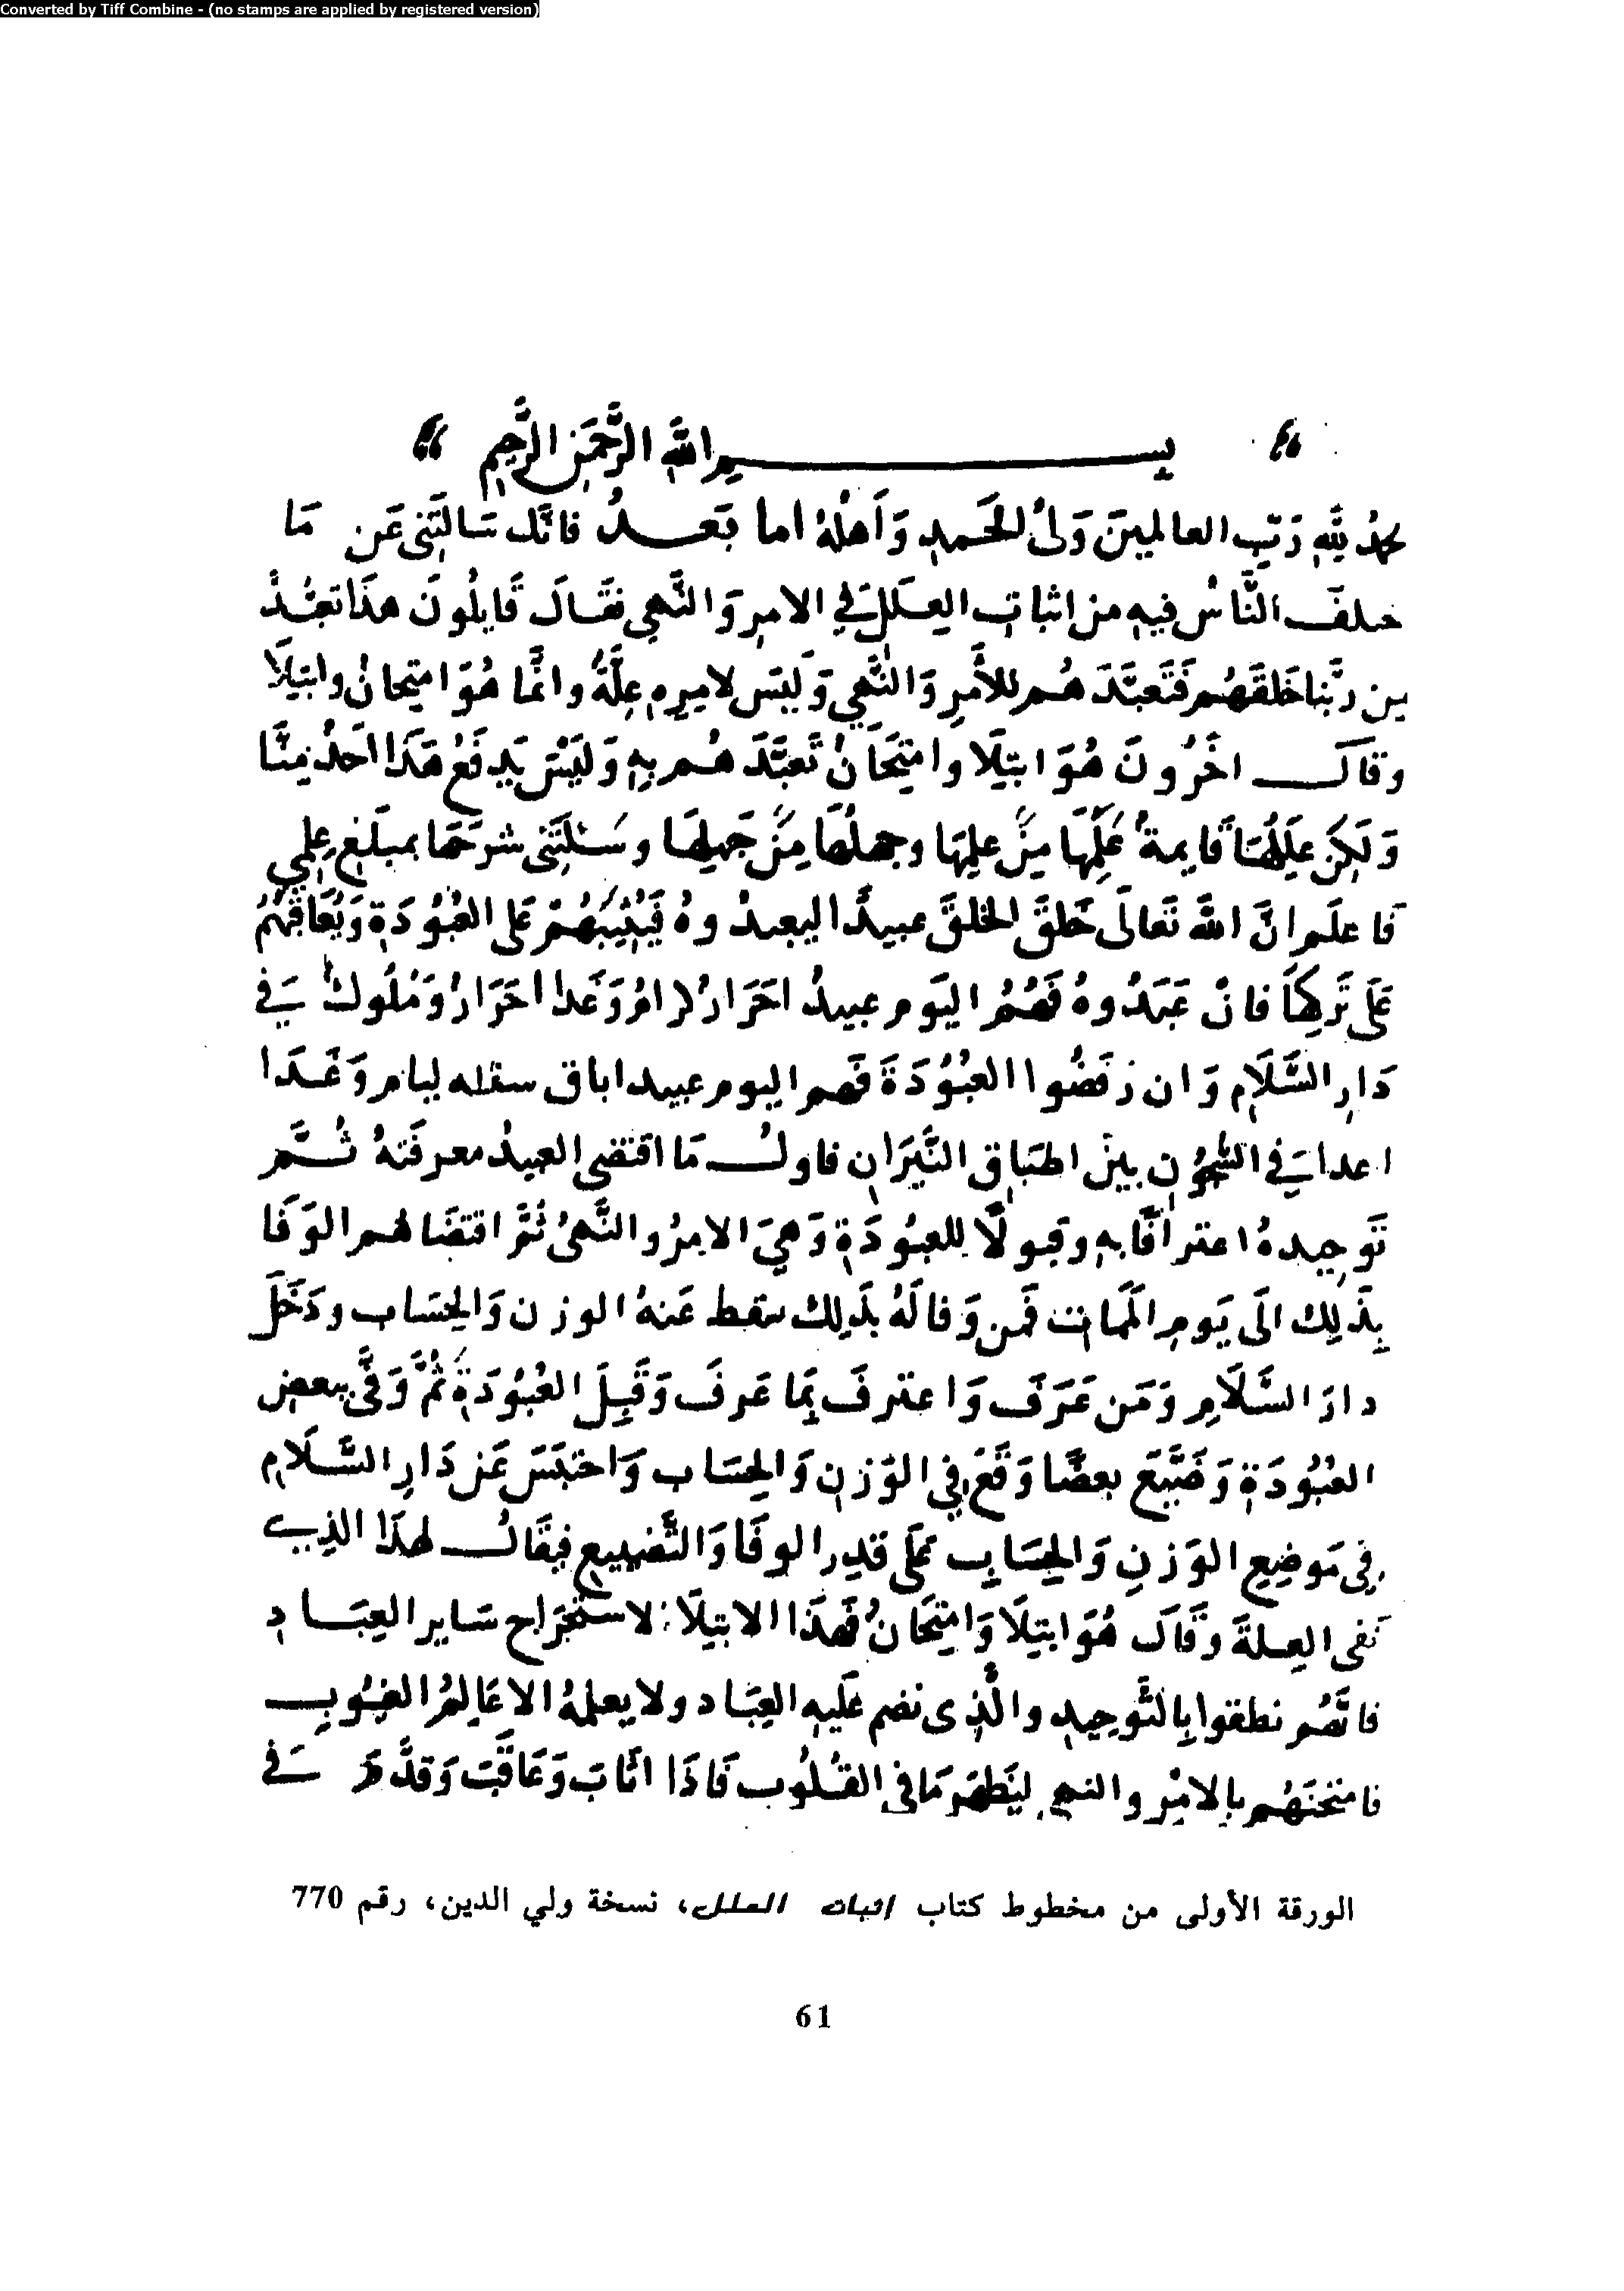 Converted by Tiff Combine - (no stamps are applied by registered version)
بسم الله الرَّحمَنِ الرَّحِيمِ
لله رَبِّ العالمينَ وَلىُّ الحَمدِ وَأهلُهُ اما بَعدُ فانَّك سَالتَنِى عَن مَا
النَّاسُ فيهِ من اثباتِ العِلَلِ في الامرِ وَالنَّهىِ فقَالَ قَايلُونَ هذَا تعَبُّدٌ
رَبِّنا خَلَقَهُم فَتَعَبَّدَ هُم للأَمرِ وَالنَّهىِ وَلَيسَ لامرِهِ عِلَّةٌ وانَّما هُوَ امتِحَانٌ وابتِلاَ
وقَالَ اخَرُونَ هُوَ ابتِلَا وامتِحَانٌ تَعَبَّدَ هُم بِهِ وَلَيسَ يَدفَعُ هَذَا احَدٌ مِنَّا
وَلَكِن عِلَلُهَا قايمةٌ عَلِمَهَا مَن علِمَهَا وجهلَهَا مَن جَهِلَهَا وسَئلتَنِى شرحَهَا بمبلَغِ عِلمِي
فاعلَم انَّ اللهَ تَعَالَى خَلَقَ الخلقَ عَبيدًا ليعبدُوهُ فَيُثِيبَهُم عَلى العُبُودَةِ وَيُعَاقِبَهُم
عَلَى تَركِهَا فان عَبَدُوهُ فَهُمُ اليَومَ عبيدٌ احَرَارٌ كرامٌ وَغَدا احَرَارٌ وَمُلُوكٌ في
دَارِ السَّلَامِ وَان رَفَضُوا العُبُودَةَ فَهم اليوم عبيد اباق سفله ليام وَغَدَا
اعدا في السُّجُونِ بين اطبَاقِ النِّيرَانِ فاولُ مَا اقتضى العبيدُ معرفَتَهُ ثُمَّ
تَوحِيدهُ اعترافًا بهِ وقبولًا للعبُودَةِ وَهِيَ الامرُ والنَّهىُ ثُمَّ اقتضَا لهم الوَفَا
بِذَلِك الَى يَومِ المَمَات فَمَن وَفا لَهُ بذَلِك سقط عَنهُ الوزن وَالحِسَاب ودَخَلَ
دارَ السَّلَامِ وَمَن عَرَفَ وَاعترفَ بِمَا عَرفَ وَقَبِلَ العُبُودَةَ ثُمَّ وَفَّى ببعضِ
العُبُودَةِ وَضَيَّعَ بعضًا وَقَعَ في الوَزنِ وَالحِسَابِ وَاحتَبَسَ عَن دَارِ السَّلَامِ
في مَوضِعِ الوَزنِ وَالحِسَابِ عَلى قدرِ الوفَا وَالتَّضييعِ فيقَالُ لهذَا الذِي
نَفى العِلةَ وَقَالَ هُوَ ابتِلَا وَامتِحَانٌ فَهَذَا الابتِلَا لاستخرَاج سَاير العِبَادِ
فانَّهُم نطقوا بِالتَّوحِيدِ والَّذِى نضم عَلَيهِ العِبَاد ولا يعلمهُ الا عَالِمُ الغيُوبِ
فامتَحَنَهُم بالامرِ والنهي ليَظهَر مَا في القُلُوب فَاذَا اثَابَ وَعَاقَبَ وَقَدَّمَ في
الورقة الأولى من مخطوط كتاب اثبات العلل، نسخة ولي الدين، رقم 770
61